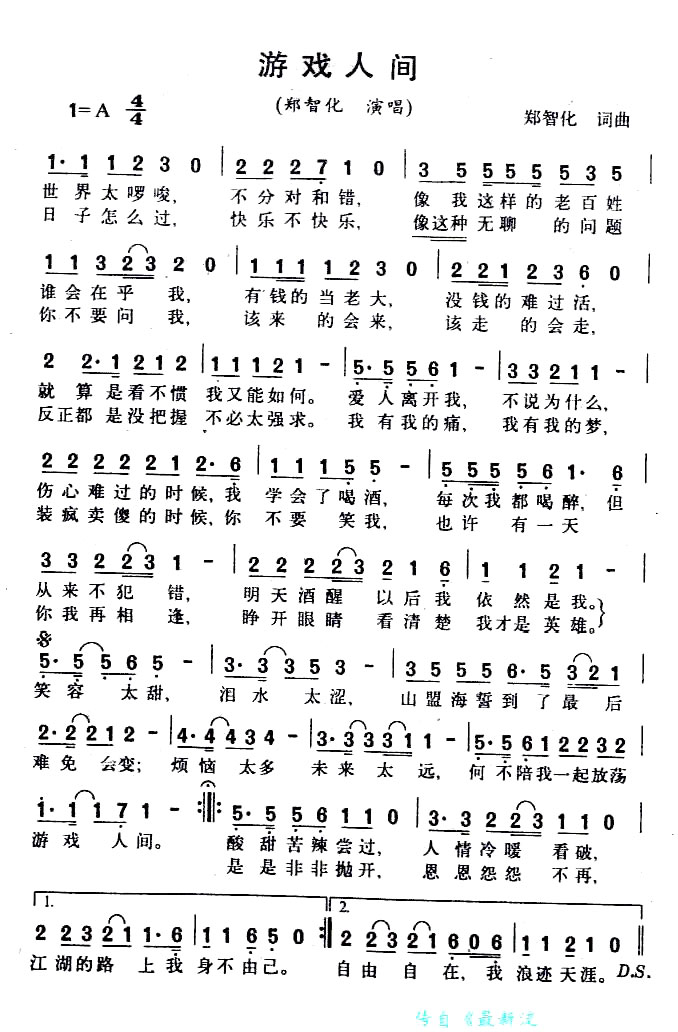 游戏人间
1=A 4/4
(郑智化 演唱)
郑智化 词曲
1· 1 1 2 3 0 | 2 2 2 7 1 0 | 3 5 5 5 5 5 3 5 |
世界太啰唆, 不分对和错, 像我这样的老百姓
日子怎么过, 快乐不快乐, 像这种无聊的问题
1 1 3 2 3 2 0 | 1 1 1 1 2 3 0 | 2 2 2 1 2 3 6 0 |
谁会在乎我, 有钱的当老大, 没钱的难过活,
你不要问我, 该来的会来, 该走的会走,
2 2· 1 2 1 2 | 1 1 1 2 1 - | 5· 5 5 6 1 - | 3 3 2 1 1 - |
就算是看不惯 我又能如何。 爱人离开我, 不说为什么,
反正都是没把握 不必太强求。 我有我的痛, 我有我的梦,
2 2 2 2 2 2 2· 6 | 1 1 1 5 5 - | 5 5 5 5 6 1· 6 |
伤心难过的时候,我 学会了喝酒, 每次我都喝醉,但
装疯卖傻的时候,你 不要笑我, 也许有一天
3 3 2 2 3 1 - | 2 2 2 2 2 3 2 1 6 | 1 1 2 1 - |
从来不犯错, 明天酒醒以后我依然是我。
你我再相逢, 睁开眼睛看清楚我才是英雄。
5· 5 5 6 5· | 3· 3 3 2 3· | 3 5 5 5 6· 5 3 2 1 |
笑容太甜, 泪水太涩, 山盟海誓到了最后
2· 2 2 1 2 | 4· 4 4 3 4 - | 3· 3 3 3 5 1 1 | 5· 5 6 1 2 2 3 2 |
难免会变; 烦恼太多 未来太远, 何不陪我一起放荡
1· 1 1 7 1 - :|||: 5· 5 5 6 1 1 0 | 3· 3 2 2 2 3 1 1 0 |
游戏人间。 酸甜苦辣尝过, 人情冷暖看破,
是是非非抛开, 恩恩怨怨不再,
1. 2.
2 2 3 2 1 1· 6 | 1 1 6 5 0 :|| 2 2 3 2 2 1 6 0 6 | 1 1 2 1 0 ||
江湖的路上我身不由己。 自由自在,我浪迹天涯。D.S.
传自《最新流